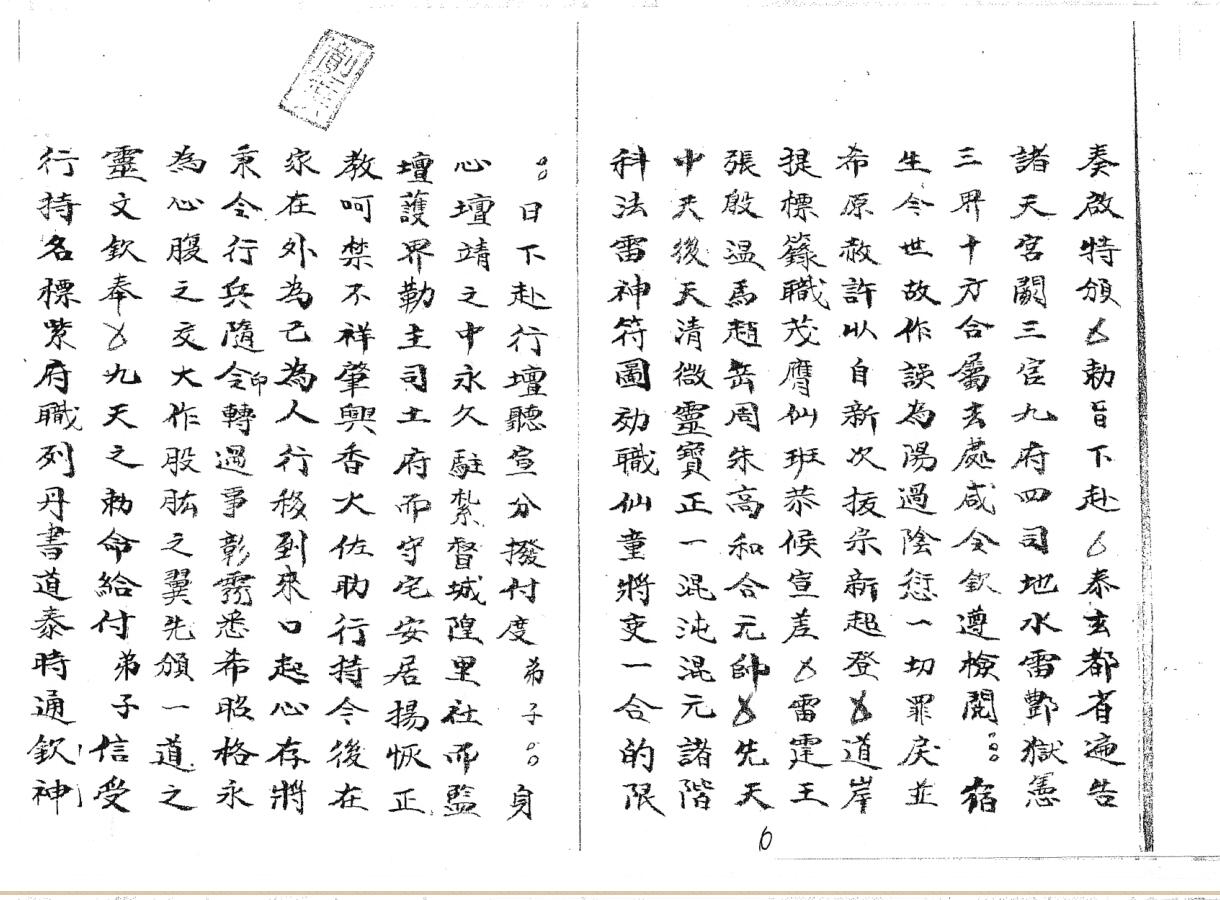 奏啟特頒勅旨下赴泰玄都省遍告
諸天宮闕三官九府四司地水雷酆獄憲
三界十方合屬去處咸令欽遵檢閱宿
生今世故作誤為陽過陰愆一切罪戾並
希原赦許以自新次拔宗新起登道岸
提標籙職茂膺仙班恭候宣差雷霆王
張殷温馬趙岳周朱高和合元帥先天
中天後天清微靈寶正一混沌混元諸階
科法雷神符圖効職仙童將吏一合的限
日下赴行壇聽宣分撥付度弟子身
心壇靖之中永久駐紮督城隍里社而監
壇護界勒主司土府而守宅安居揚恢正
教呵禁不祥肇興香火佐助行持今後在
家在外為己為人行移到來口起心存將
秉令行兵隨令印轉遇事彰霛悉希昭格永
為心腹之交大作股肱之翼先頒一道之
靈文欽奉九天之勅命給付弟子信受
行持名標紫府職列丹書道泰時通欽神
6